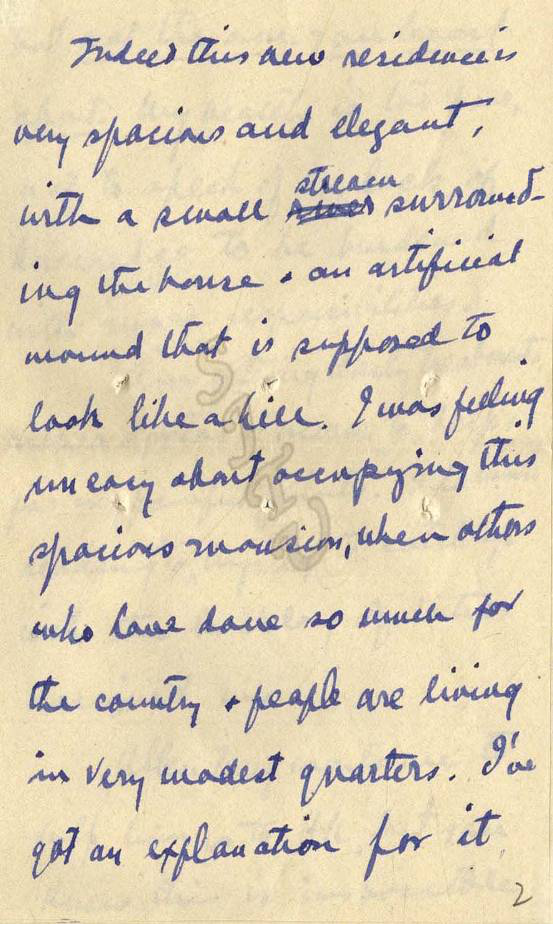 Indeed this new residence is
very spacious and elegant,
with a small river stream surround-
ing the house & an artificial
mound that is supposed to
look like a hill. I was feeling
uneasy about occupying this
spacious mansion, when others
who have done so much for
the country & people are living
in very modest quarters. I've
got an explanation for it
2